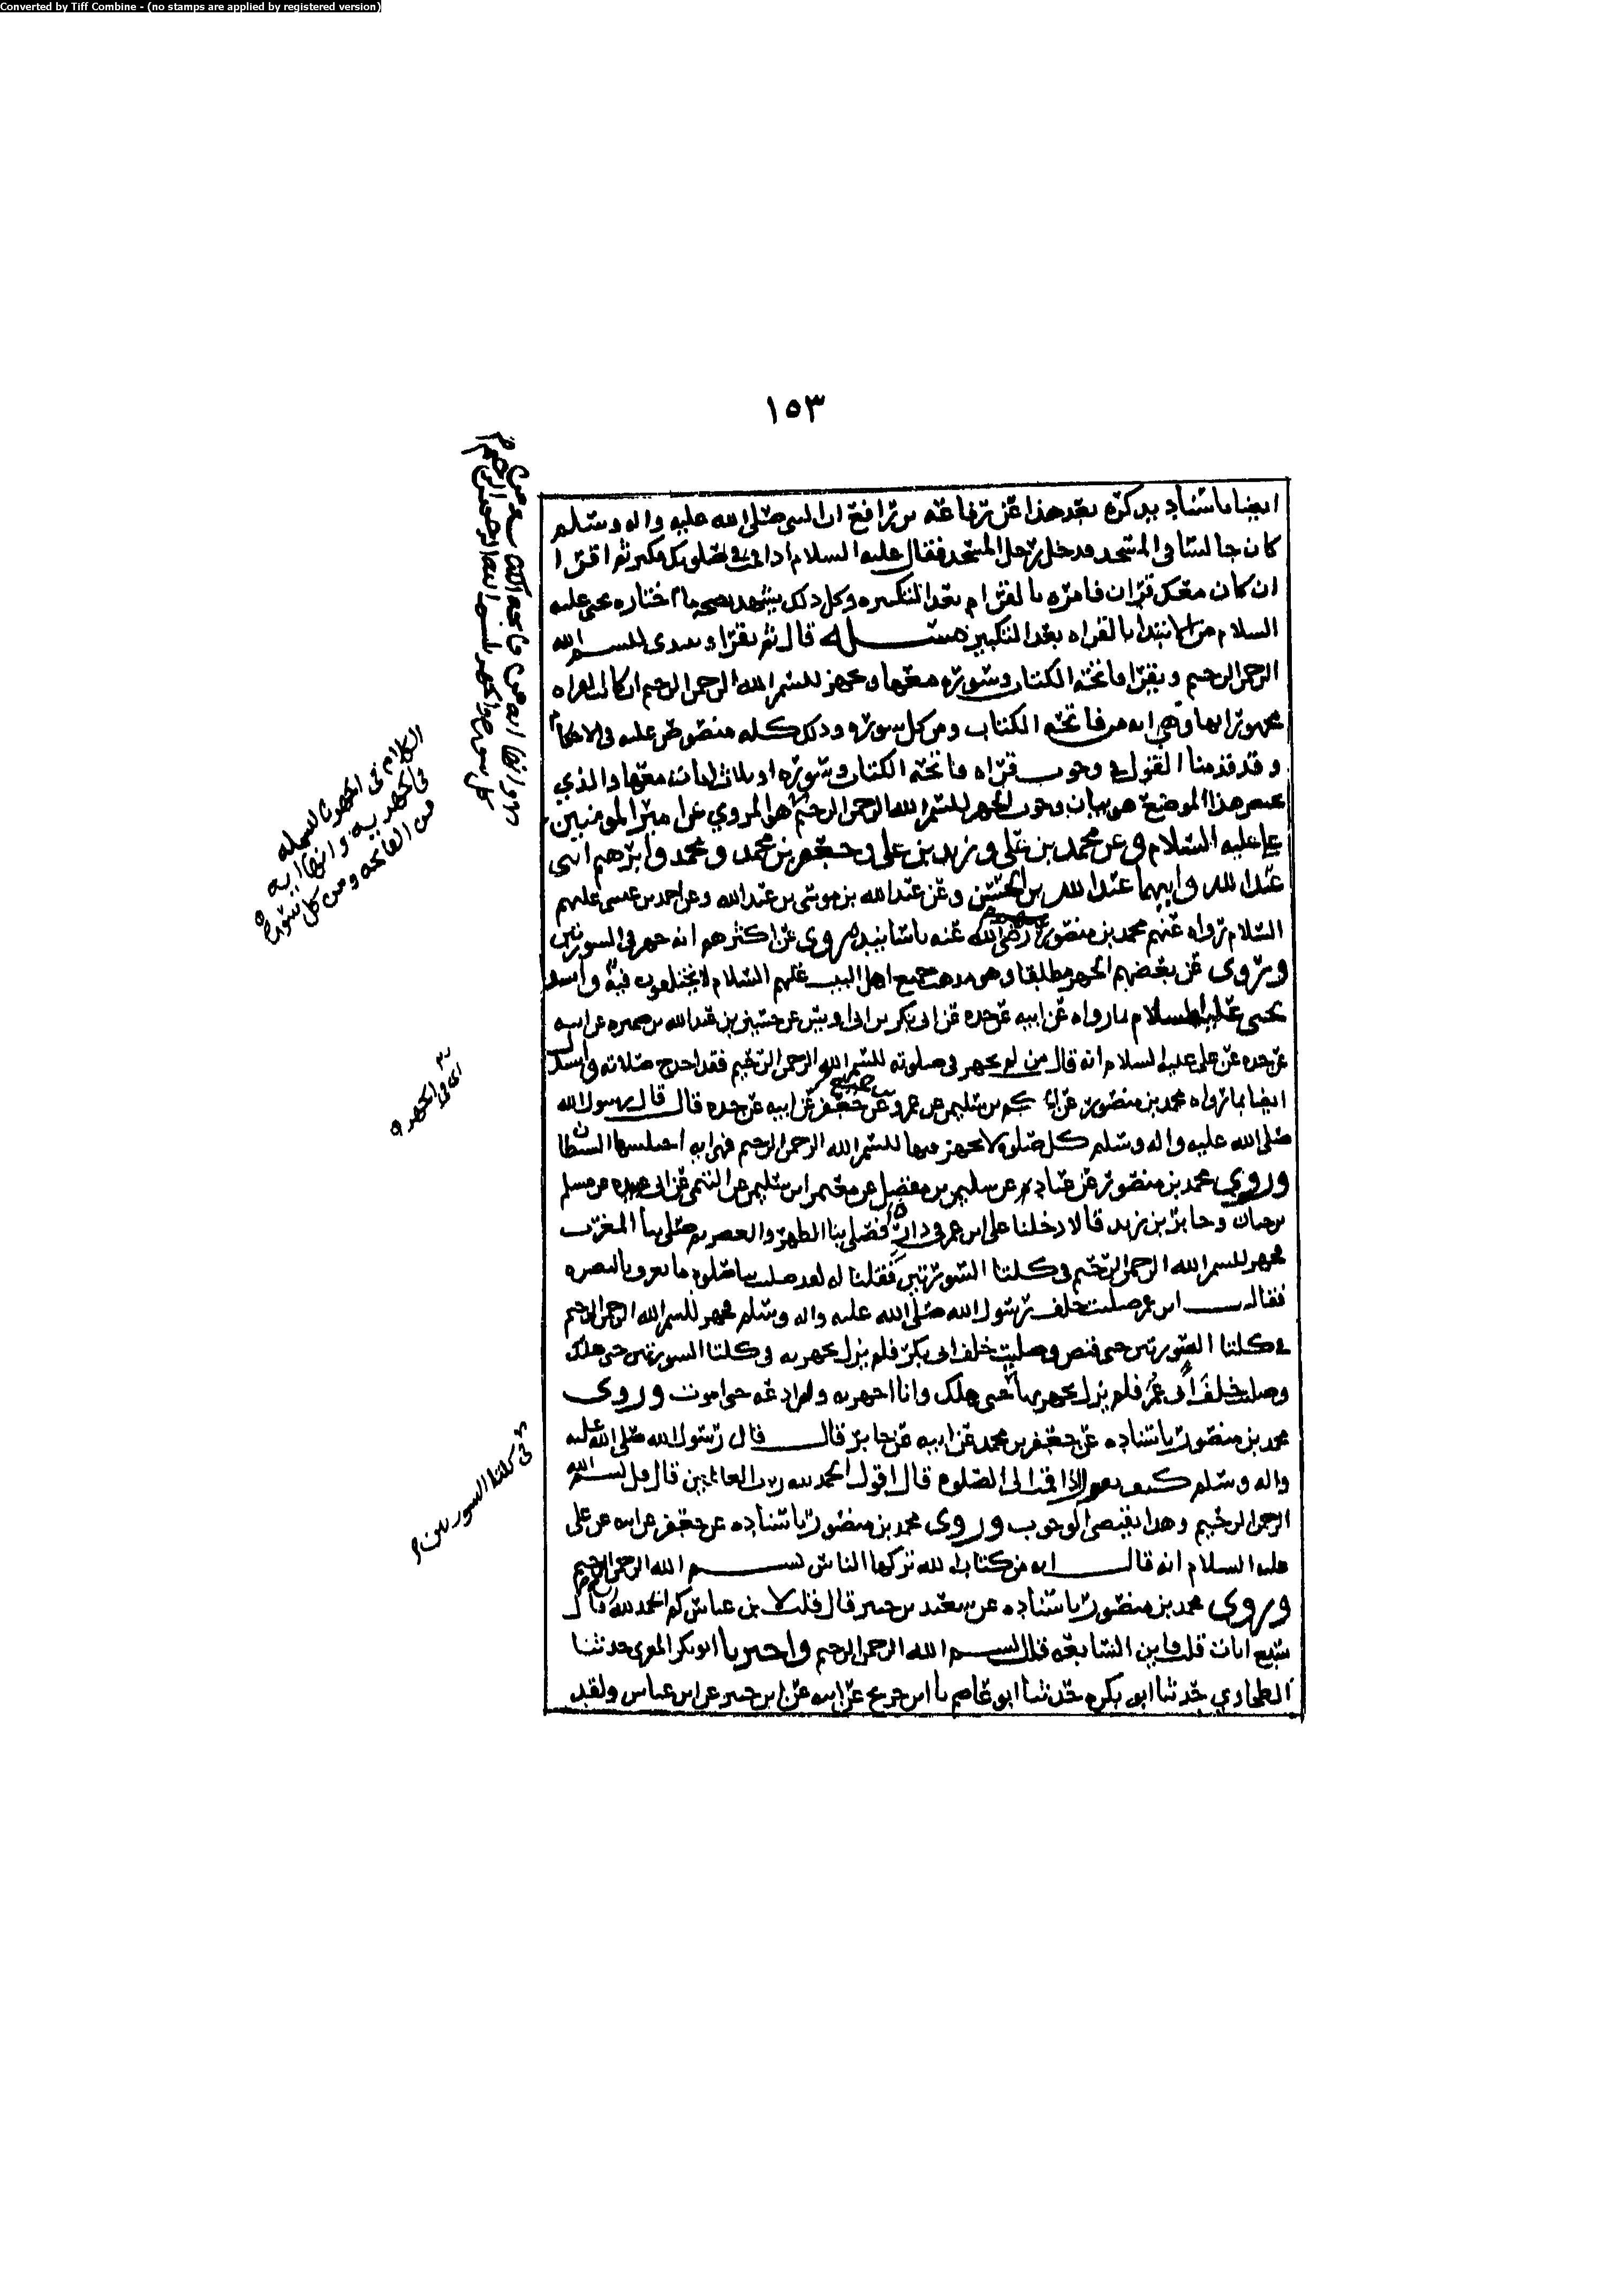 Converted by Tiff Combine - (no stamps are applied by registered version)
١٥٣
ايضا باسناد يذكره بعد هذا عن رفاعه بن رافع ان النبي صلى الله عليه واله وسلم
كان جالسا في المسجد فدخل رجل المسجد فقال عليه السلام اذا قمت في صلوتك فكبر ثم اقرا
ان كان معك قران فامره بالقراه بعد التكبيره وكل ذلك يشهد بصحه ما اختاره يحيى عليه
السلام من الابتدا بالقراه بعد التكبير مسئله قال ثم يقرا ويبتدي ببسم الله
الرحمن الرحيم ويقرا فاتحه الكتاب وسوره معها ويجهر ببسم الله الرحمن الرحيم ان كانت القراه
مجهورا بها وهي ايه من فاتحه الكتاب ومن كل سوره وذلك كله منصوص عليه في الاحكام
وقد قدمنا القول في وجوب قراه فاتحه الكتاب وسوره او ثلاث ايات معها والذي
يختص هذا الموضع هو بيان وجوب الجهر ببسم الله الرحمن الرحيم هو المروي عن امير المومنين
علي عليه السلام وعن محمد بن علي وزيد بن علي وجعفر بن محمد ومحمد وابرهيم ابني
عبد الله وابيهما عبد الله بن الحسن وعن عبد الله بن موسى بن عبد الله وعن احمد بن عيسى عليهم
السلام رواه عنهم محمد بن منصور رضي الله عنه باسانيده وروي عن اكثرهم انه جهر في السورتين
وروى عن بعضهم الجهر مطلقا وهو مذهب جميع اهل البيت عليهم السلام لا يختلفون فيه واستدل
يحيى عليه السلام بما رواه عن ابيه عن جده عن ابي بكر بن ابي اويس عن حسين بن عبد الله بن ضميره عن ابيه
عن جده عن علي عليه السلام انه قال من لم يجهر في صلوته ببسم الله الرحمن الرحيم فقد اخدج صلاته واستدل
ايضا بما رواه محمد بن منصور عن بن سليمن عن عمرو عن جعفر عن ابيه عن جده قال قال رسول الله
صلى الله عليه واله وسلم كل صلوه لا يجهر فيها ببسم الله الرحمن الرحيم فهي ايه اختلسها الشيطان
وروي محمد بن منصور عن عباد عن سليمن بن مفضل عن معتمر ابن سليمن عن التيمي عن ابي عبيده عن مسلم
بن حيان وجابر بن زيد قالا دخلنا على ابن عمر في داره فصلى بنا الظهر والعصر ثم صلى بنا المغرب
فجهر ببسم الله الرحمن الرحيم في كلتا السورتين فقلنا له لقد صليت بنا صلوه ما تعرف بالبصره
فقال ابن عمر صليت خلف رسول الله صلى الله عليه واله وسلم فجهر ببسم الله الرحمن الرحيم
في كلتا السورتين حتى قبض وصليت خلف ابي بكر فلم يزل يجهر به في كلتا السورتين حتى هلك
وصليت خلف ابي عمر فلم يزل يجهر بها حتى هلك وانا اجهر به ولم ادعه حتى اموت وروى
محمد بن منصور باسناده عن جعفر بن محمد عن ابيه عن جابر قال قال رسول الله صلى الله عليه
واله وسلم كيف تقول اذا قمت الى الصلوه قال اقول الحمد لله رب العالمين قال قل بسم الله
الرحمن الرحيم وهذا يقتضي الوجوب وروى محمد بن منصور باسناده عن جعفر عن ابيه عن علي
عليه السلام انه قال ايه من كتاب الله تركها الناس بسم الله الرحمن الرحيم
وروى محمد بن منصور باسناده عن سعيد بن جبير قال قلت لابن عباس كم الحمد لله قال
سبع ايات قلت فاين السابعه قال بسم الله الرحمن الرحيم واخبرنا ابو بكر المقري حدثنا
الطحاوي حدثنا ابو بكره حدثنا ابو عاصم نا ابن جريج عن ابيه عن ابن جبير عن ابن عباس ولقد
الكلام في الجهر بالبسمله
في الجهريه وانها ايه
من الفاتحه ومن كل سوره
اي في الجهر
في كلتا السورتين